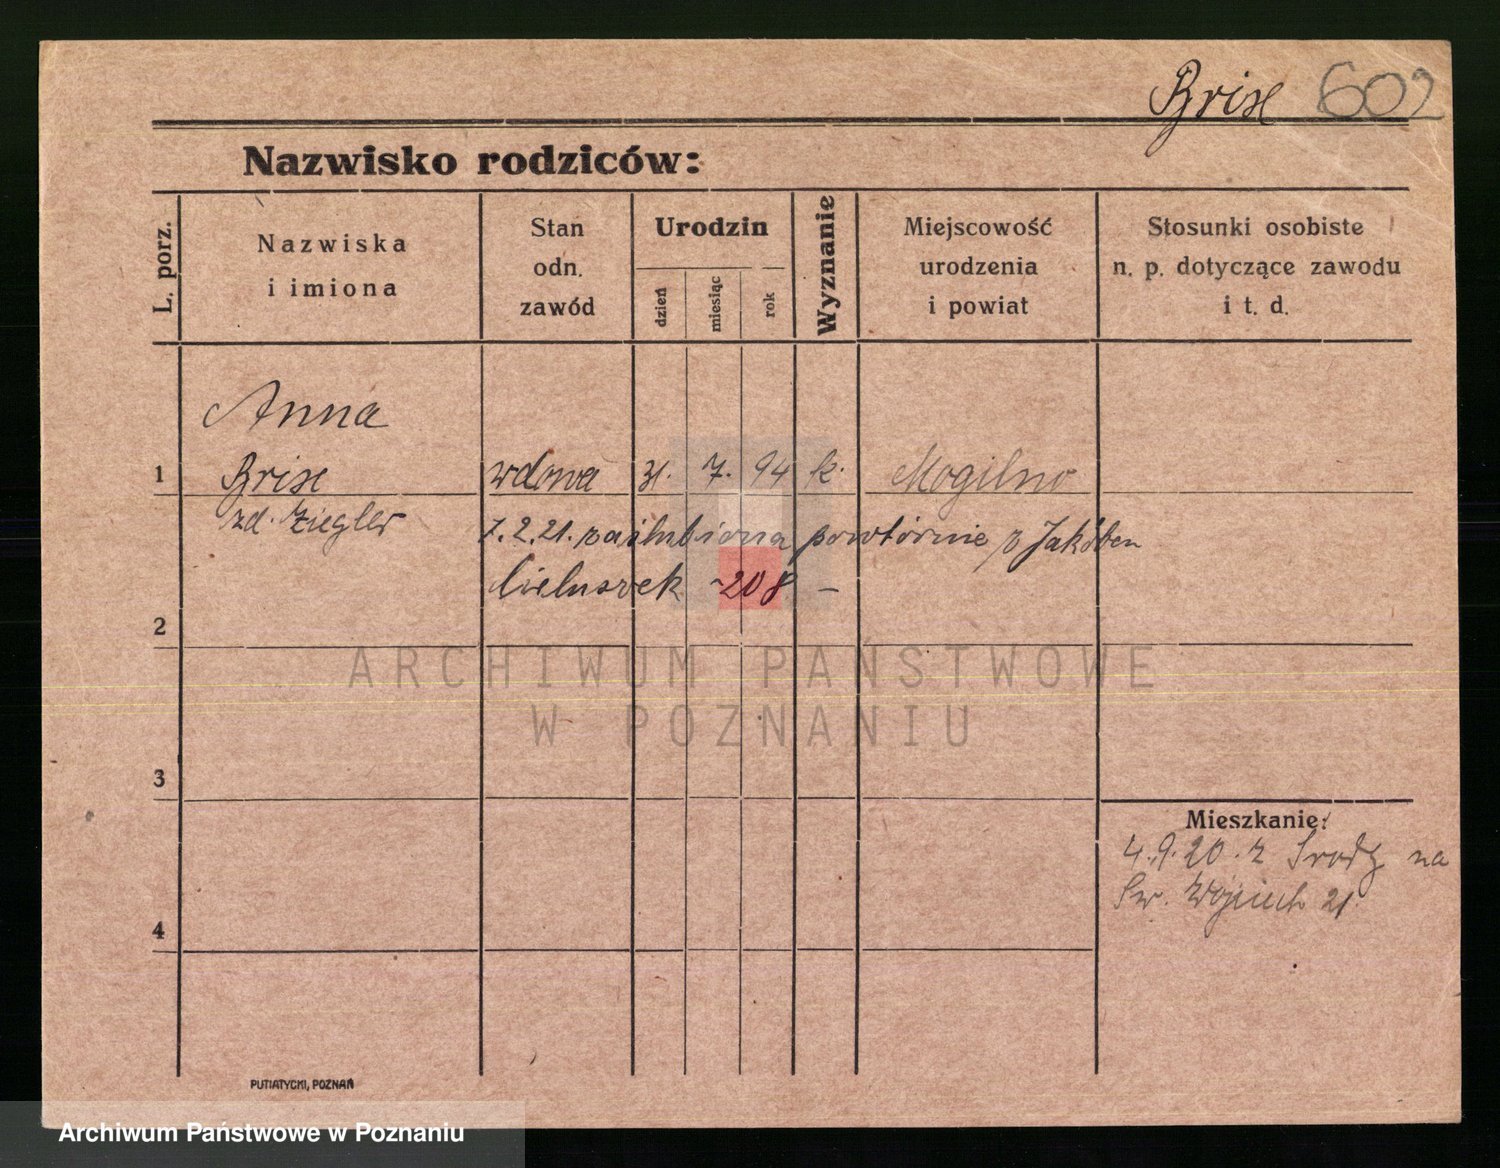 Brise 602
Nazwisko rodziców:
L. porz.
Nazwiska
i imiona
Stan
odn.
zawód
Urodzin
dzień
miesiąc
rok
Wyznanie
Miejscowość
urodzenia
i powiat
Stosunki osobiste
n. p. dotyczące zawodu
i t. d.
Anna
1 Brise wdowa 31. 7. 94 k. Mogilno
zd. Ziegler
7.2.21. zaślubiona powtórnie z Jakóbem
208 –
2
ARCHIWUM PAŃSTWOWE
W POZNANIU
3
Mieszkanie:
4.9.20. z Srody na
Sw. Wojciech 21
4
PUTIATYCKI, POZNAŃ
Archiwum Państwowe w Poznaniu